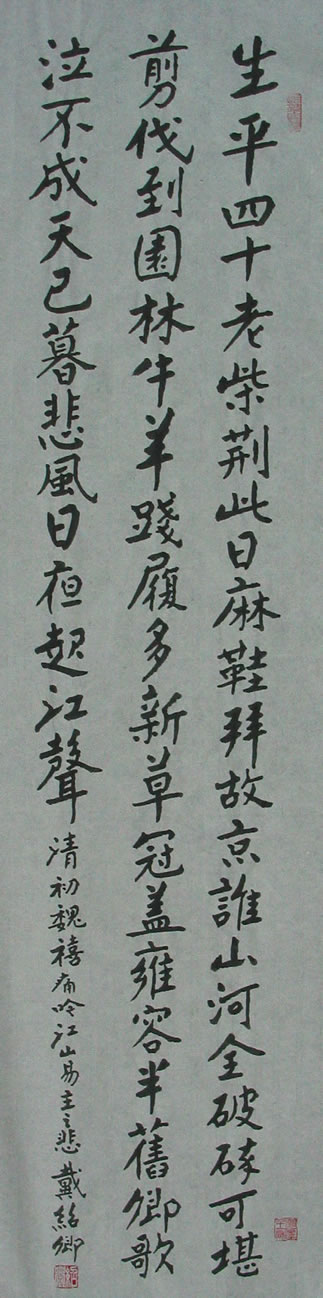 生平四十老柴荆此日麻鞋拜故京誰山河全破碎可堪
剪伐到園林牛羊踐履多新草冠盖雍容半舊卿歌
泣不成天已暮悲風日夜起江聲
清初魏禧痛吟江山易主之悲 戴紹卿